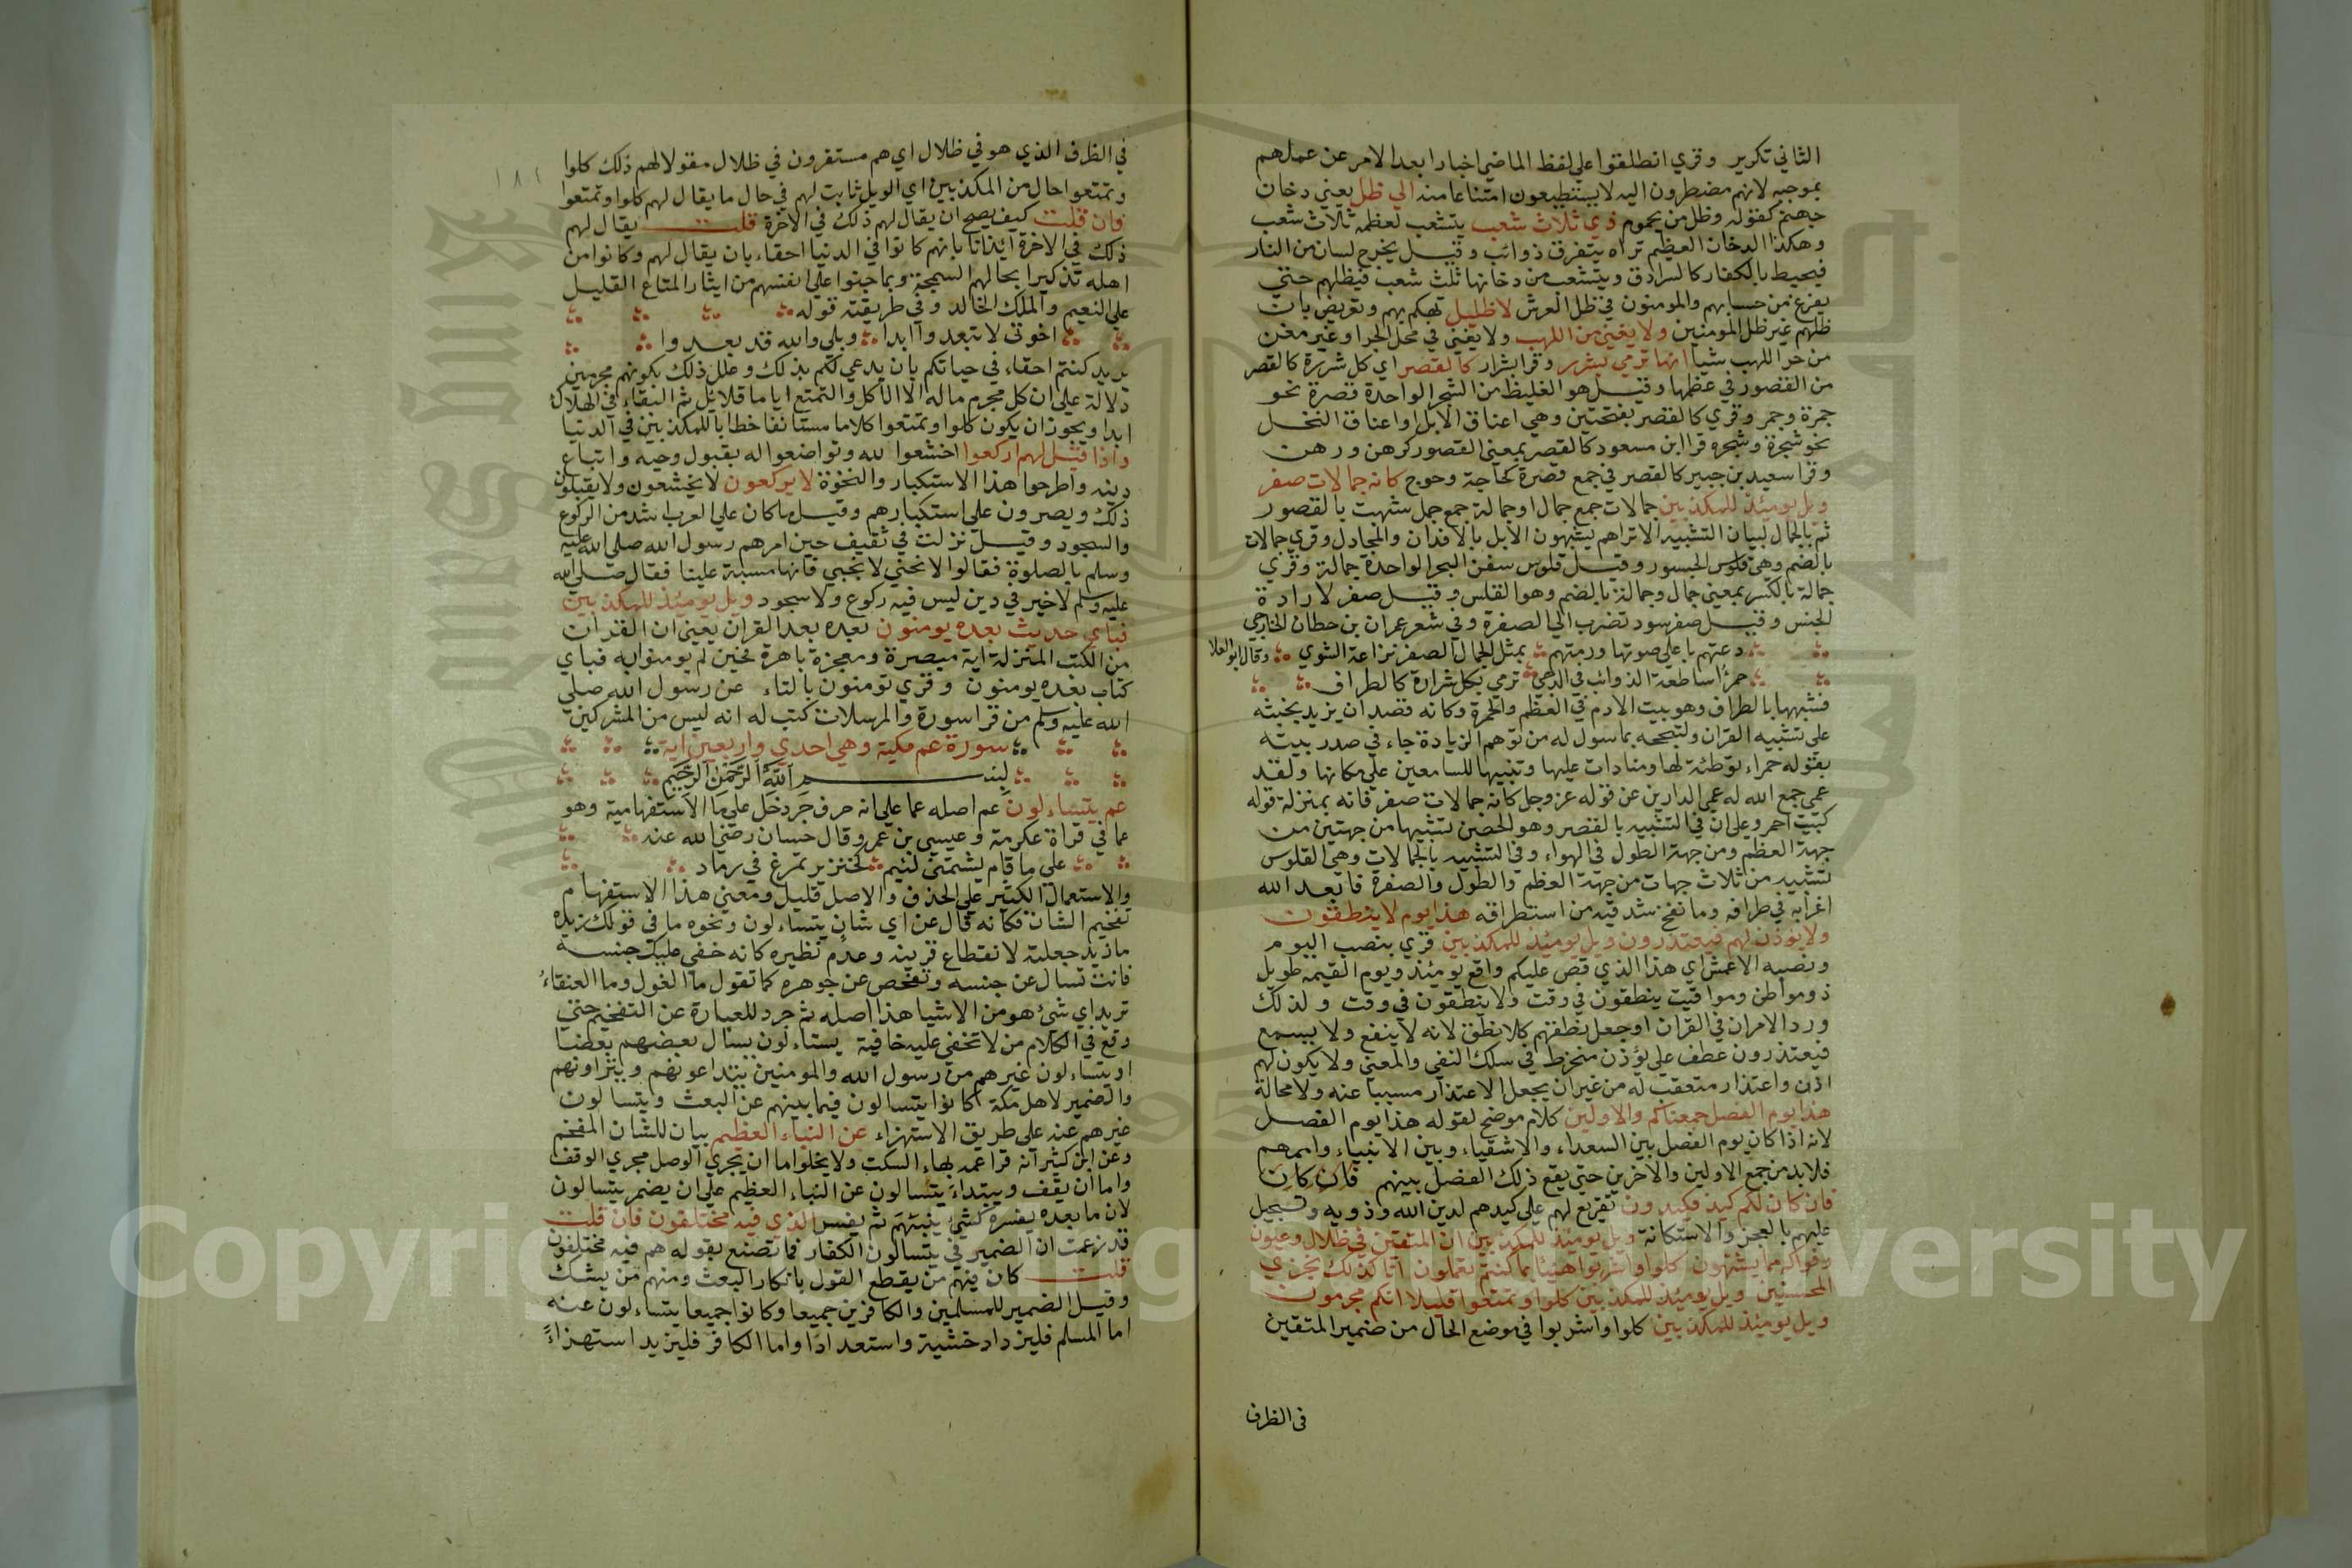 الثاني تكرير وقري انطلقوا علي لفظ الماضي اخبارا بعد الامر عن عملهم
بموجبه لانهم مضطرون اليه لا يستطيعون امتناعا منه الي ظل يعني دخان
جهنم كقوله وظل من يحموم ذي ثلاث شعب يتشعب لعظمه ثلاث شعب
وهكذا الدخان العظيم تراه يتفرق ذوائب وقيل يخرج لسان من النار
فيحيط بالكفار كالسرادق ويتشعب من دخانها ثلث شعب فيظلهم حتي
يفرغ من حسابهم والمومنون في ظل العرش لا ظليل تهكم بهم وتعريض بان
ظلهم غير ظل المومنين ولا يغني من اللهب ولا يغني في محل الجر اي وغير مغن
من حر اللهب شيا انها ترمي بشرر وقرا بشرار كالقصر اي كل شررة كالقصر
من القصور في عظمها وقيل هو الغليظ من الشجر الواحدة قصرة نحو
جمرة وجمر وقري كالقصر بفتحتين وهي اعناق الابل او اعناق النخل
نحو شجرة وشجره قرا ابن مسعود كالقصر بمعني القصور كرهن ورهن
وقرا سعيد بن جبير كالقصر في جمع قصرة كحاجة وحوج كانه جمالات صفر
ويل يومئذ للمكذبين جمالات جمع جمال او جمالة جمع جمل شبهت بالقصور
ثم بالجمال لبيان التشبيه الا تراهم يشبهون الابل بالافدان والمجادل وقري جمالات
بالضم وهي قلوس الجسور وقيل قلوس سفن البحر الواحدة جمالة وقري
جمالة بالكسر بمعني جمال وجمالة بالضم وهو القلس وقيل صفر لارادة
الجنس وقيل صفر سود تضرب الي الصفرة وفي شعر عمران بن حطان الخارجي
دعتهم باعلي صوتها ورمتهم بمثل الجمال الصفر نزاعة الشوي وقال ابو العلا
حمرا ساطعة الذوائب في الدجي ترمي بكل شرارة كالطراف
فشبهها بالطراف وهو بيت الادم في العظم والحمرة وكانه قصد ان يزيد بخبثه
علي تشبيه القران ولتبجحه بما سول له من توهم الزيادة جاء في صدر بيته
بقوله حمراء توطئة لها ومنادات عليها وتنبيها للسامعين علي مكانها ولقد
عمي جمع الله له عمي الدارين عن قوله عز وجل كانه جمالات صفر فانه بمنزلة قوله
كبيت احمر وعلي ان في التشبيه بالقصر وهو الحصن تشبيها من جهتين من
جهة العظم ومن جهة الطول في الهواء وفي التشبيه بالجمالات وهي القلوس
تشبيه من ثلاث جهات من جهة العظم والطول والصفرة فابعد الله
اغرابه في طرافه وما نفخ شدقيه من استطرافه هذا يوم لا ينطقون
ولا يوذن لهم فيعتذرون ويل يومئذ للمكذبين قري بنصب اليوم
ونصبه الاعمش اي هذا الذي قص عليكم واقع يومئذ ويوم القيمه طويل
ذو مواطن ومواقيت ينطقون في وقت ولا ينطقون في وقت ولذلك
ورد الامران في القران او جعل نطقهم كلا نطق لانه لا ينفع ولا يسمع
فيعتذرون عطف علي يؤذن منخرط في سلك النفي والمعني ولا يكون لهم
اذن واعتذار متعقب له من غير ان يجعل الاعتذار مسببا عنه ولا محالة
هذا يوم الفصل جمعناكم والاولين كلام موضح لقوله هذا يوم الفصل
لانه اذا كان يوم الفصل بين السعداء والاشقياء وبين الانبياء واممهم
فلابد من جمع الاولين والاخرين حتي يقع ذلك الفصل بينهم فان كان
فان كان لكم كيد فكيدون تقريع لهم علي كيدهم لدين الله وذويه وتسجيل
عليهم بالعجز والاستكانة ويل يومئذ للمكذبين ان المتقين في ظلال وعيون
وفواكه مما يشتهون كلوا واشربوا هنيئا بما كنتم تعملون انا كذلك نجزي
المحسنين ويل يومئذ للمكذبين كلوا وتمتعوا قليلا انكم مجرمون
ويل يومئذ للمكذبين كلوا واشربوا في موضع الحال من ضمير المتقين
في الظرف
١٨١
في الظرف الذي هو في ظلال اي هم مستقرون في ظلال مقولا لهم ذلك كلوا
وتمتعوا حال من المكذبين اي الويل ثابت لهم في حال ما يقال لهم كلوا وتمتعوا
وان قلت كيف يصح ان يقال لهم ذلك في الاخرة قلت يقال لهم
ذلك في الاخرة ايذانا بانهم كانوا في الدنيا احقاء بان يقال لهم وكانوا من
اهله تذكيرا بحالهم السمجة وبما جنوا علي انفسهم من ايثار المتاع القليل
علي النعيم والملك الخالد وفي طريقته قوله
اخوتي لا تبعدوا ابدا وبلي والله قد بعدوا
يريد كنتم احقاء في حياتكم بان يدعي لكم بذلك وعلل ذلك بكونهم مجرمين
دلالة علي ان كل مجرم ماله الا الاكل والتمتع اياما قلائل ثم البقاء في الهلاك
ابدا ويجوز ان يكون كلوا وتمتعوا كلاما مستانفا خطابا للمكذبين في الدنيا
واذا قيل لهم اركعوا اخشعوا لله وتواضعوا له بقبول وحيه واتباع
دينه واطرحوا هذا الاستكبار والنخوة لا يركعون لا يخشعون ولا يقبلون
ذلك ويصرون علي استكبارهم وقيل ما كان علي العرب اشد من الركوع
والسجود وقيل نزلت في ثقيف حين امرهم رسول الله صلي الله عليه
وسلم بالصلوة فقالوا لا نحني لا نجبي فانها مسبة علينا فقال صلي الله
عليه وسلم لا خير في دين ليس فيه ركوع ولا سجود ويل يومئذ للمكذبين
فباي حديث بعده يومنون بعده بعد القران يعني ان القران
من الكتب المنزلة اية مبصرة ومعجزة باهرة فحين لم يومنوا به فباي
كتاب بعده يومنون وقري تومنون بالتاء عن رسول الله صلي
الله عليه وسلم من قرا سورة والمرسلات كتب له انه ليس من المشركين
سورة عم مكية وهي احدي واربعين اية
بسم الله الرحمن الرحيم
عم يتساءلون عم اصله عما علي انه حرف جر دخل علي ما الاستفهامية وهو
عما في قراة عكرمة وعيسي بن عمر وقال حسان رضي الله عنه
علي ما قام يشتمني لئيم كخنزير تمرغ في رماد
والاستعمال الكثير علي الحذف والاصل قليل ومعني هذا الاستفهام
تفخيم الشان فكانه قال عن اي شان يتساءلون ونحوه ما في قولك زيد
ما زيد جعلته لانقطاع قرينه وعدم نظيره كانه خفي عليك جنسه
فانت تسال عن جنسه وتفحص عن جوهره كما تقول ما الغول وما العنقاء
تريد اي شئ هو من الاشيا هذا اصله ثم جرد للعبارة عن التفخيم حتي
وقع في الكلام من لا تخفي عليه خافية يستاءلون يسال بعضهم بعضا
او يتساءلون غيرهم من رسول الله والمومنين يتداعونهم ويتراونهم
والضمير لاهل مكة كانوا يتسالون فيما بينهم عن البعث ويتسالون
غيرهم عنه علي طريق الاستهزاء عن النباء العظيم بيان للشان المفخم
وعن ابن كثير انه قرا عمه بهاء السكت ولا يخلوا اما ان يجري الوصل مجري الوقف
واما ان يقف ويبتداء يتسالون عن النباء العظيم علي ان يضمر يتسالون
لان ما بعده يفسره كشئ ينبئهم ثم يفسر الذي فيه مختلفون فان قلت
قد زعمت ان الضمير في يتسالون الكفار فما تصنع بقوله هم فيه مختلفون
قلت كان فيهم من يقطع القول بانكار البعث ومنهم من يشك
وقيل الضمير للمسلمين والكافرين جميعا وكانوا جميعا يتساءلون عنه
اما المسلم فليزداد خشية واستعدادا واما الكافر فليزيد استهزاءً
Copyright © King Saud University